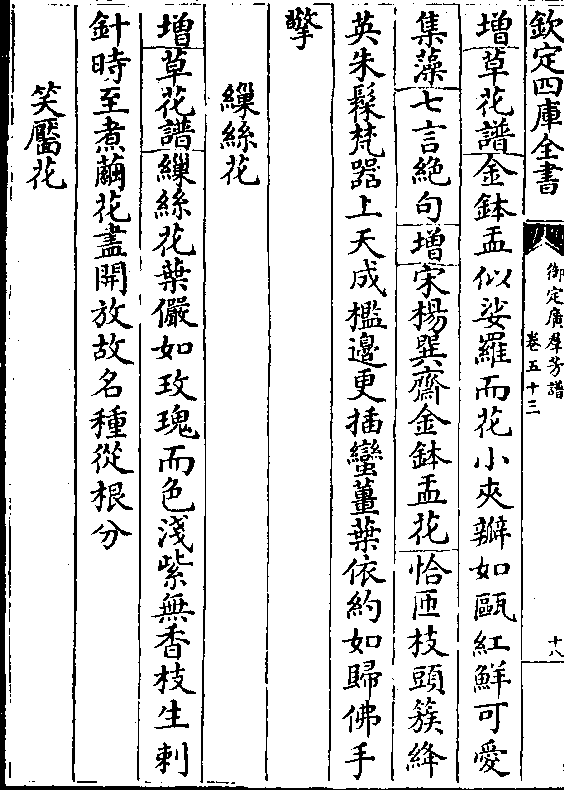 欽定四庫全書
御定廣羣芳譜
卷五十三
十八
增草花譜金鉢盂似娑羅而花小夾瓣如甌紅鮮可愛
集藻七言絶句增宋楊巽齋金鉢盂花恰匝枝頭簇絳
英朱髹梵器上天成檻邊更插蠻薑葉依約如歸佛手
擎
繅絲花
增草花譜繅絲花葉儼如玫瑰而色淺紫無香枝生刺
針時至煮繭花盡開放故名種從根分
笑靨花